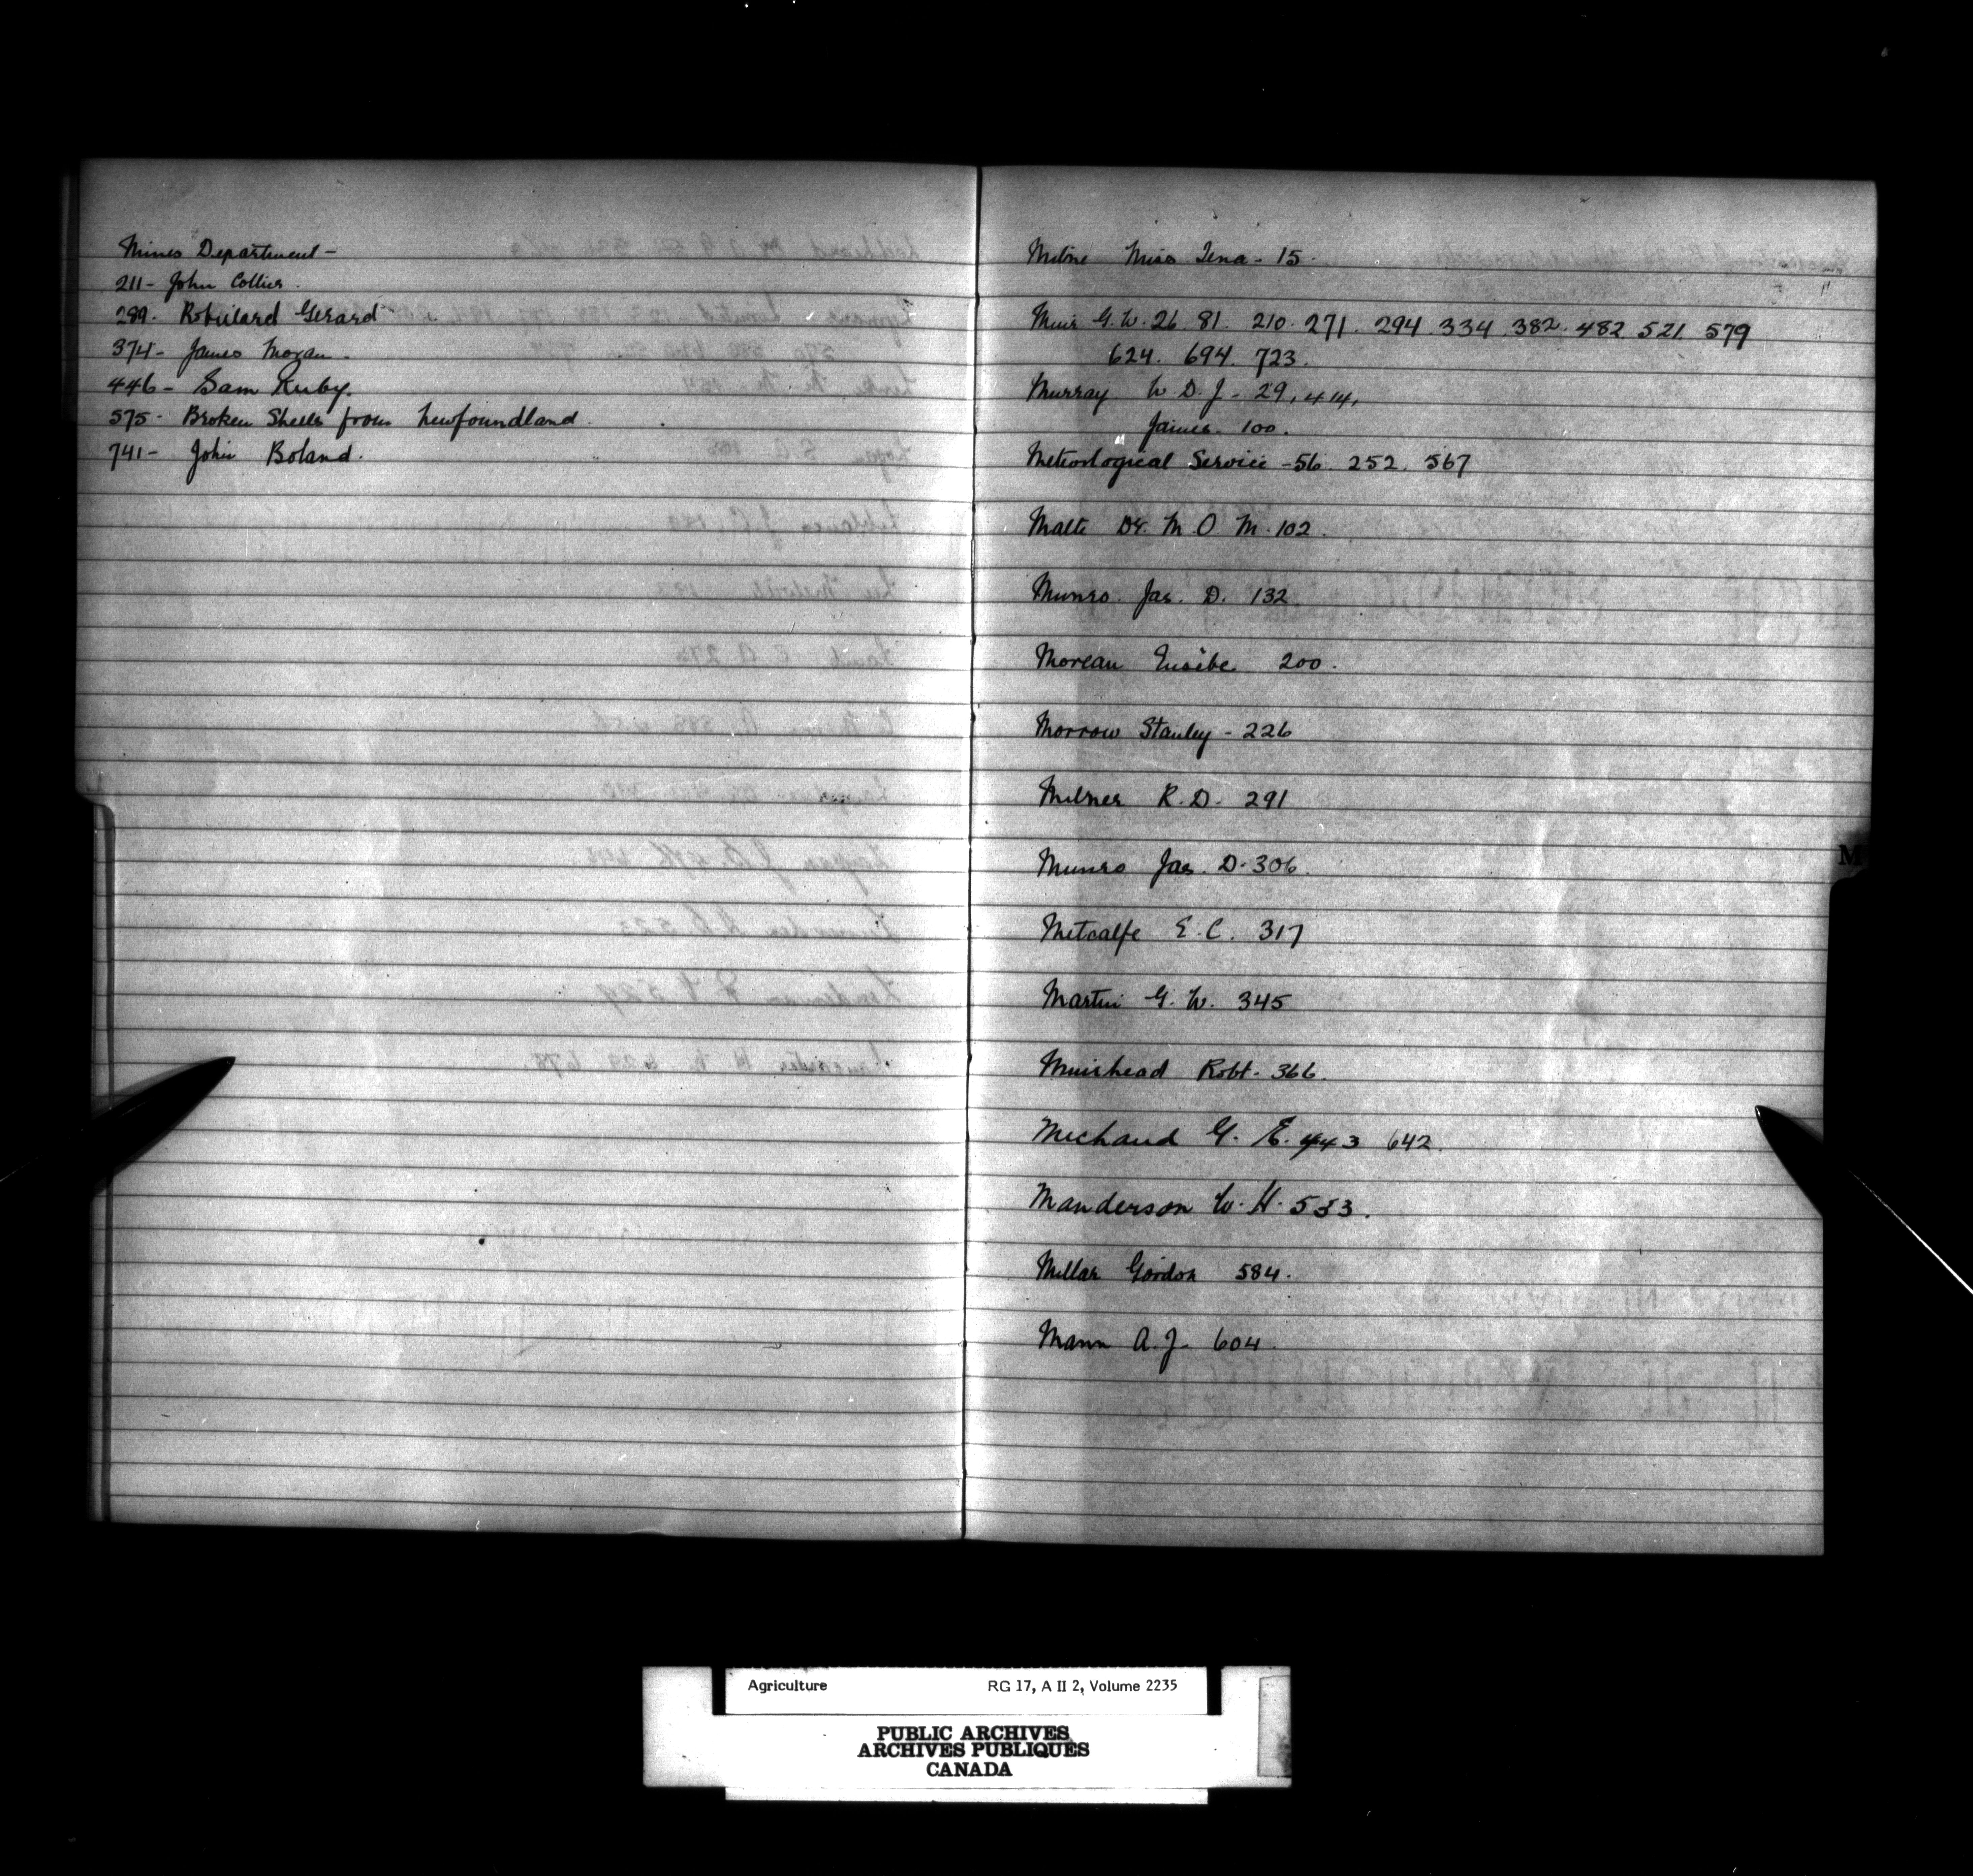 Mines Department -
211 - John Collier.
289. Robillard Gerard
374 - James Moran.
446 - Sam Ruby.
575 - Broken Shells from Newfoundland.
741 - John Boland.
Milne Miss Tena - 15.
Muir G. W. 26. 81. 210. 271. 294 334. 382. 482 521. 579
624. 694. 723.
Murray W. D. J - 29, 414,
James. 100.
Meteorlogical Service - 56. 252. 567
Malte Dr. M. O. M. 102.
Munro. Jas. D. 132
Moreau Eusèbe 200.
Morrow Stanley - 226
Milner R. D. 291
Munro Jas. D. 306.
Metcalfe E. C. 317
Martin G. W. 345
Muirhead Robt. 366.
Michaud G. E. 443 642.
Manderson W. H. 533.
Millar Gordon 584.
Mann A. J. 604.
M
Agriculture RG 17, A II 2, Volume 2235
PUBLIC ARCHIVES
ARCHIVES PUBLIQUES
CANADA